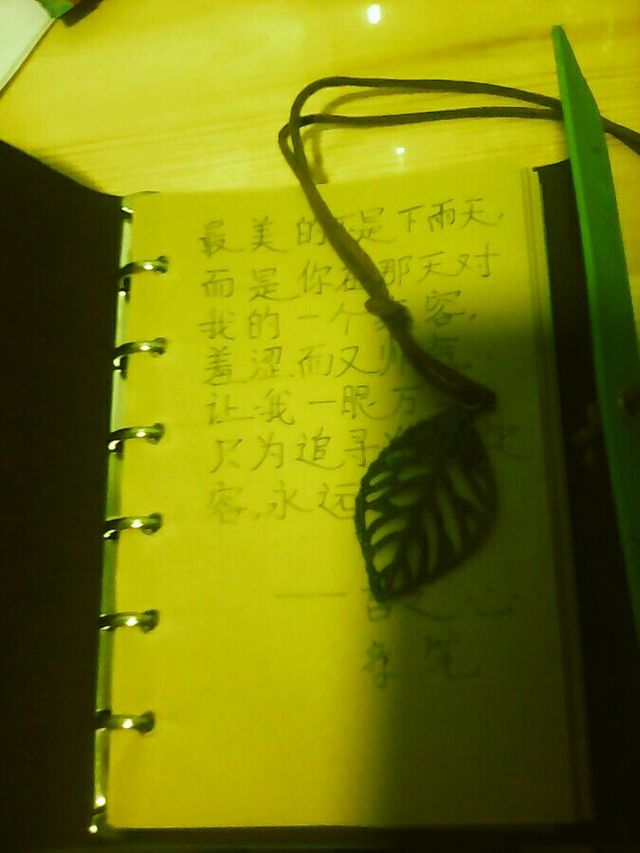 最美的不是下雨天.
而是你在那天对
我的一个笑容,
羞涩而又帅气.
让我一眼万
只为追寻
容,永远
——言之心